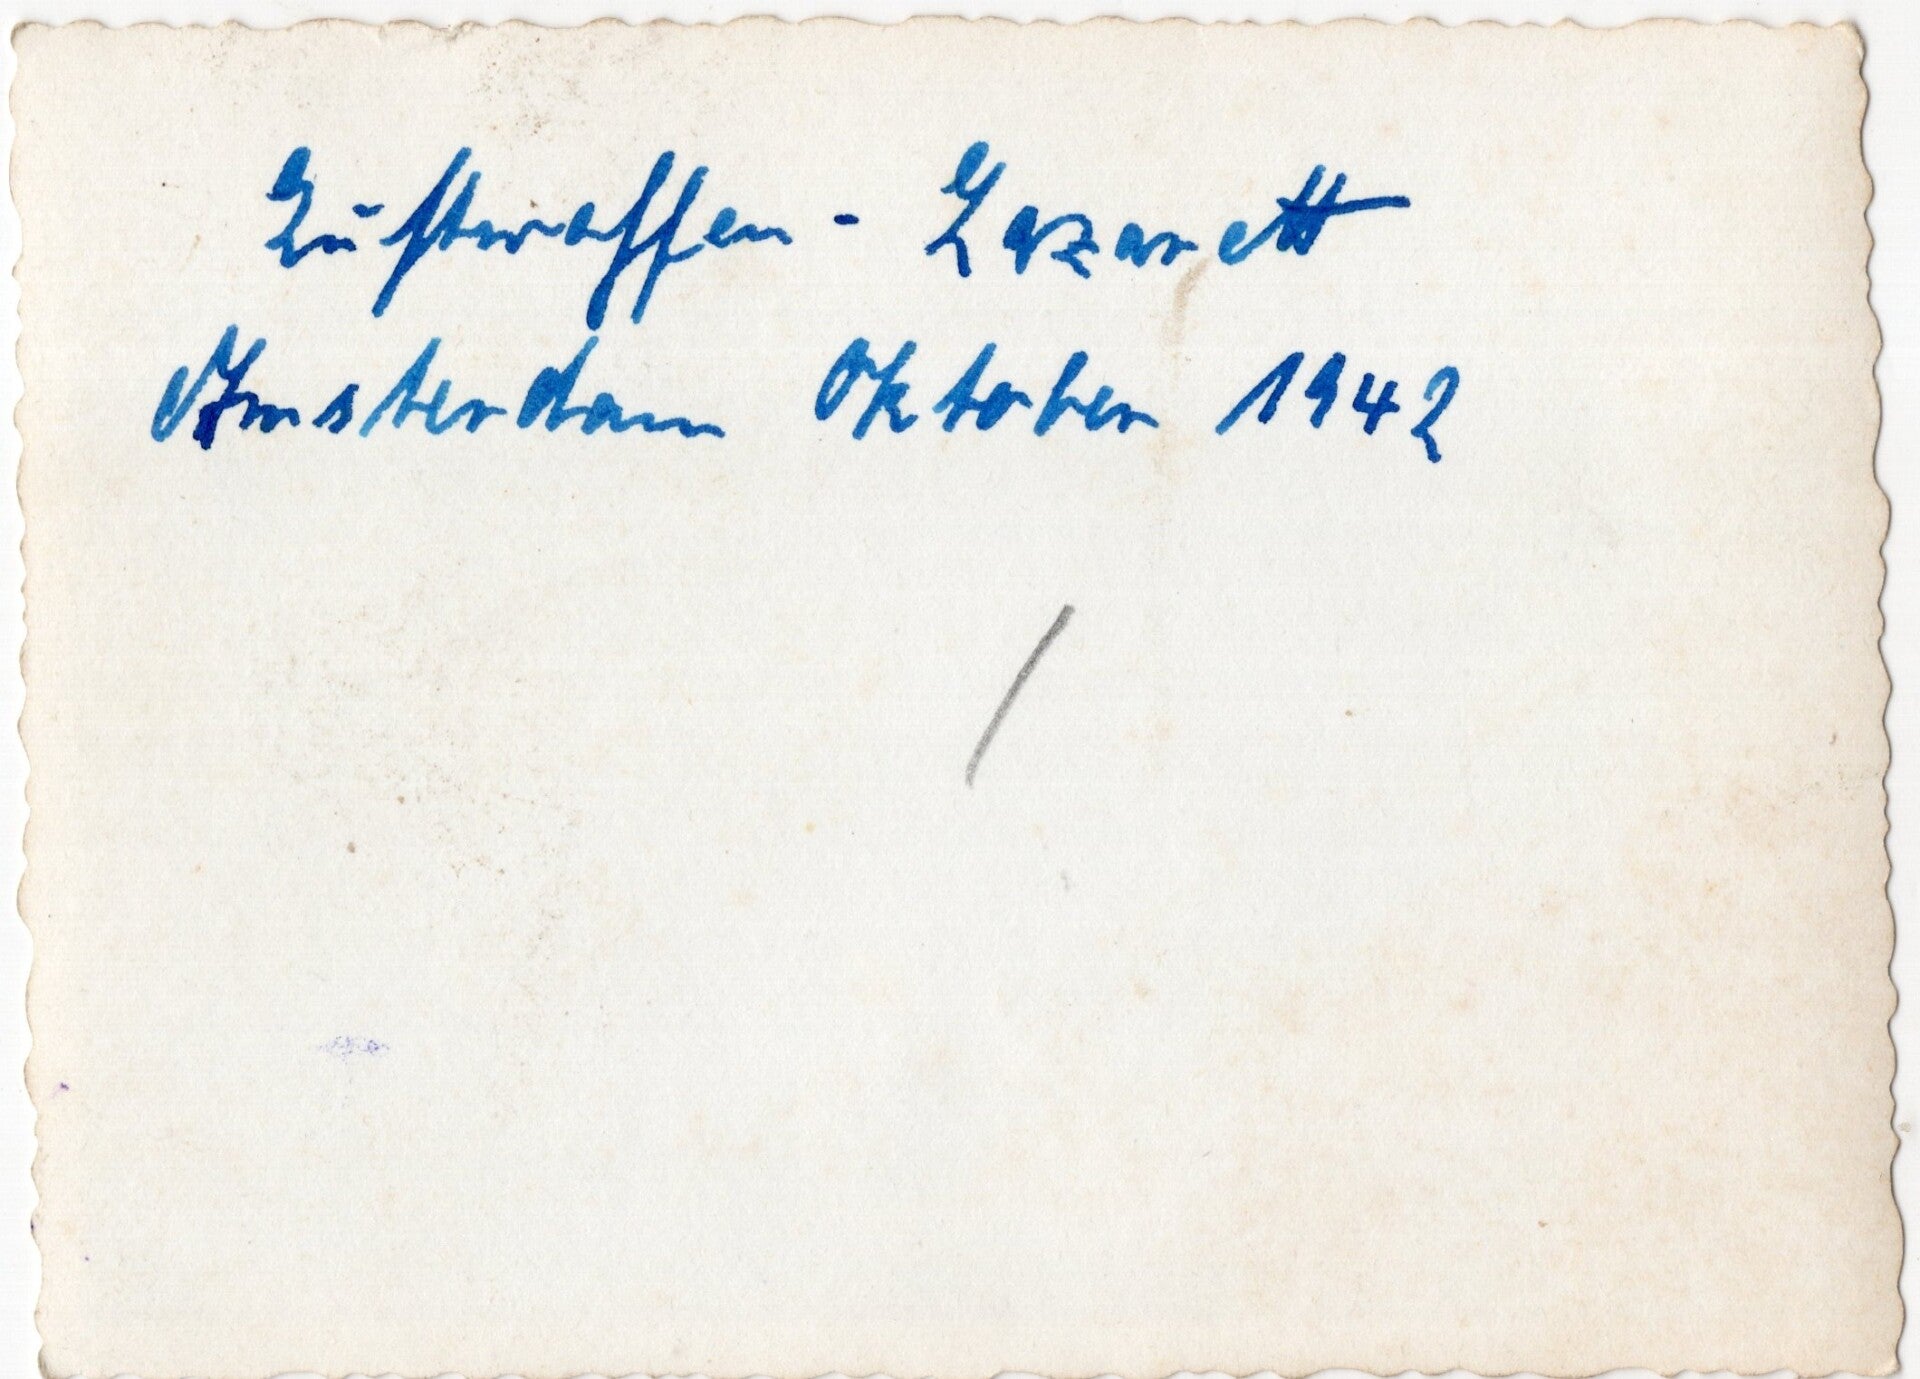 Luftwaffen - Lazarett
Amsterdam Oktober 1942